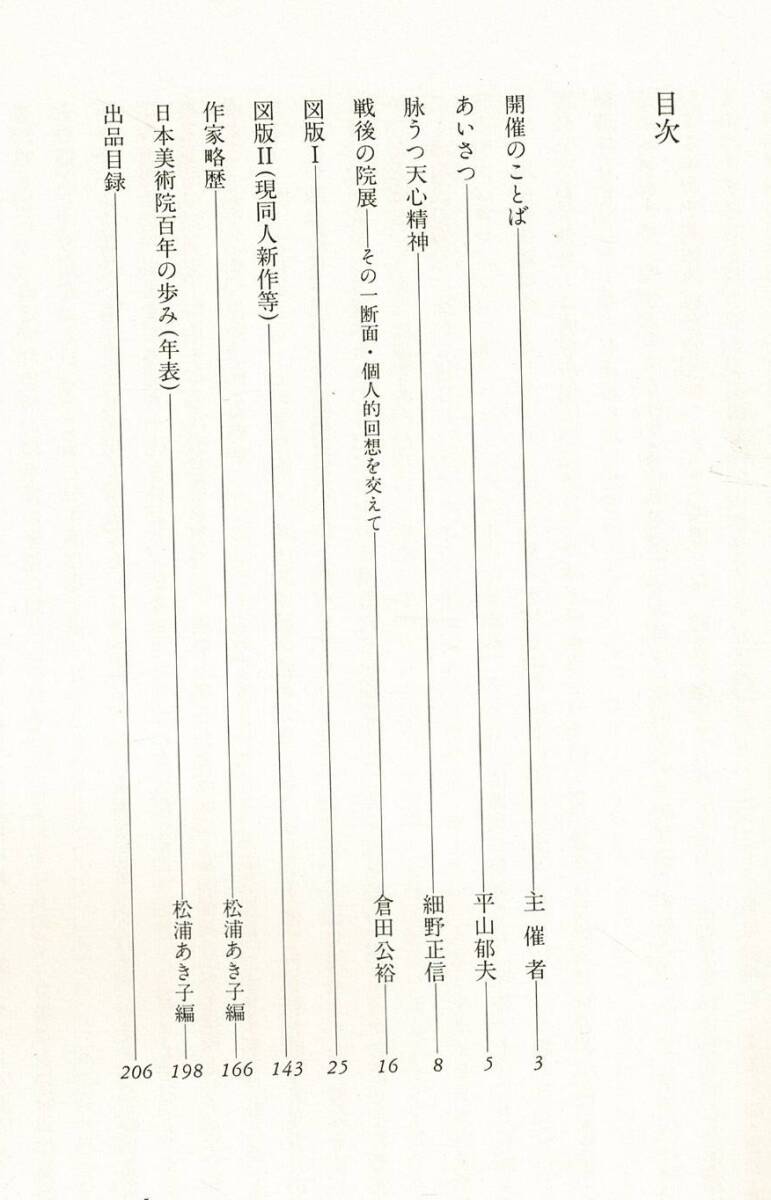 目次
開催のことば――主催者――3
あいさつ――平山郁夫――5
脉うつ天心精神――細野正信――8
戦後の院展――その一断面・個人的回想を交えて――倉田公裕――16
図版Ⅰ――25
図版Ⅱ(現同人新作等)――143
作家略歴――松浦あき子編――166
日本美術院百年の歩み(年表)――松浦あき子編――198
出品目録――206